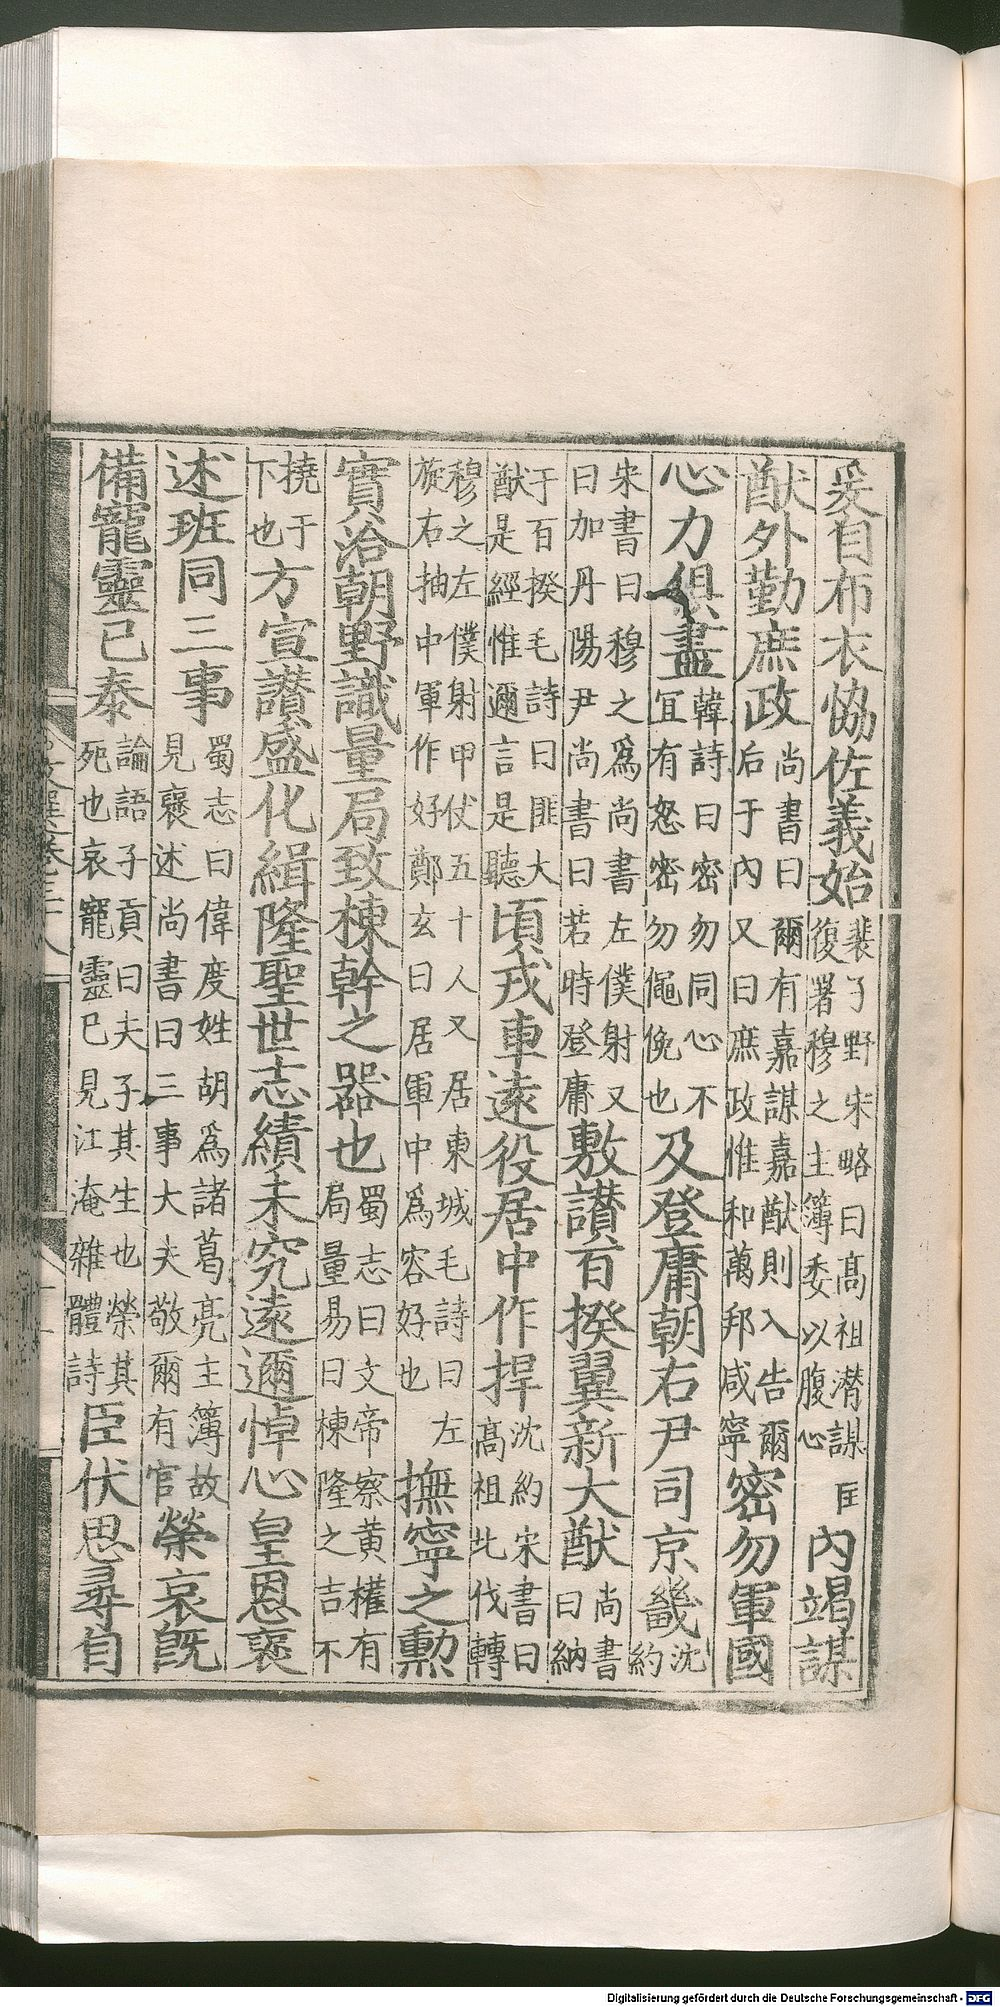 爰自布衣恊佐義始裴子野宋略曰髙祖潜謀匡復署穆之主簿委以腹心內竭謀
猷外勤庶政尚書曰爾有嘉謀嘉猷則入告爾后于內又曰庶政惟和萬邦咸寧密勿軍國
心力俱盡韓詩曰密勿同心不冝有怒密勿僶俛也及登庸朝右尹司京畿沈約
宋書曰穆之爲尚書左僕射又曰加丹陽尹尚書曰若時登庸敷讃百揆翼新大猷尚書曰納
于百揆毛詩曰匪大猷是經惟邇言是聽頃戎車遠役居中作捍沈約宋書曰髙祖北伐轉
穆之左僕射甲仗五十人又居東城毛詩曰左旋右抽中軍作好鄭玄曰居軍中爲容好也撫寧之勳
實洽朝野識量局致棟幹之器也蜀志曰文帝察黃權有局量易曰棟隆之吉不
撓于下也方宣讃盛化緝隆聖世志績未究遠邇悼心皇恩褒
述班同三事蜀志曰偉度姓胡爲諸葛亮主簿故見褒述尚書曰三事大夫敬爾有官榮哀旣
備寵靈已泰論語子貢曰夫子其生也榮其死也哀寵靈已見江淹雜體詩臣伏思尋自
文選卷三十八
Digitalisierung gefördert durch die Deutsche Forschungsgemeinschaft - DFG